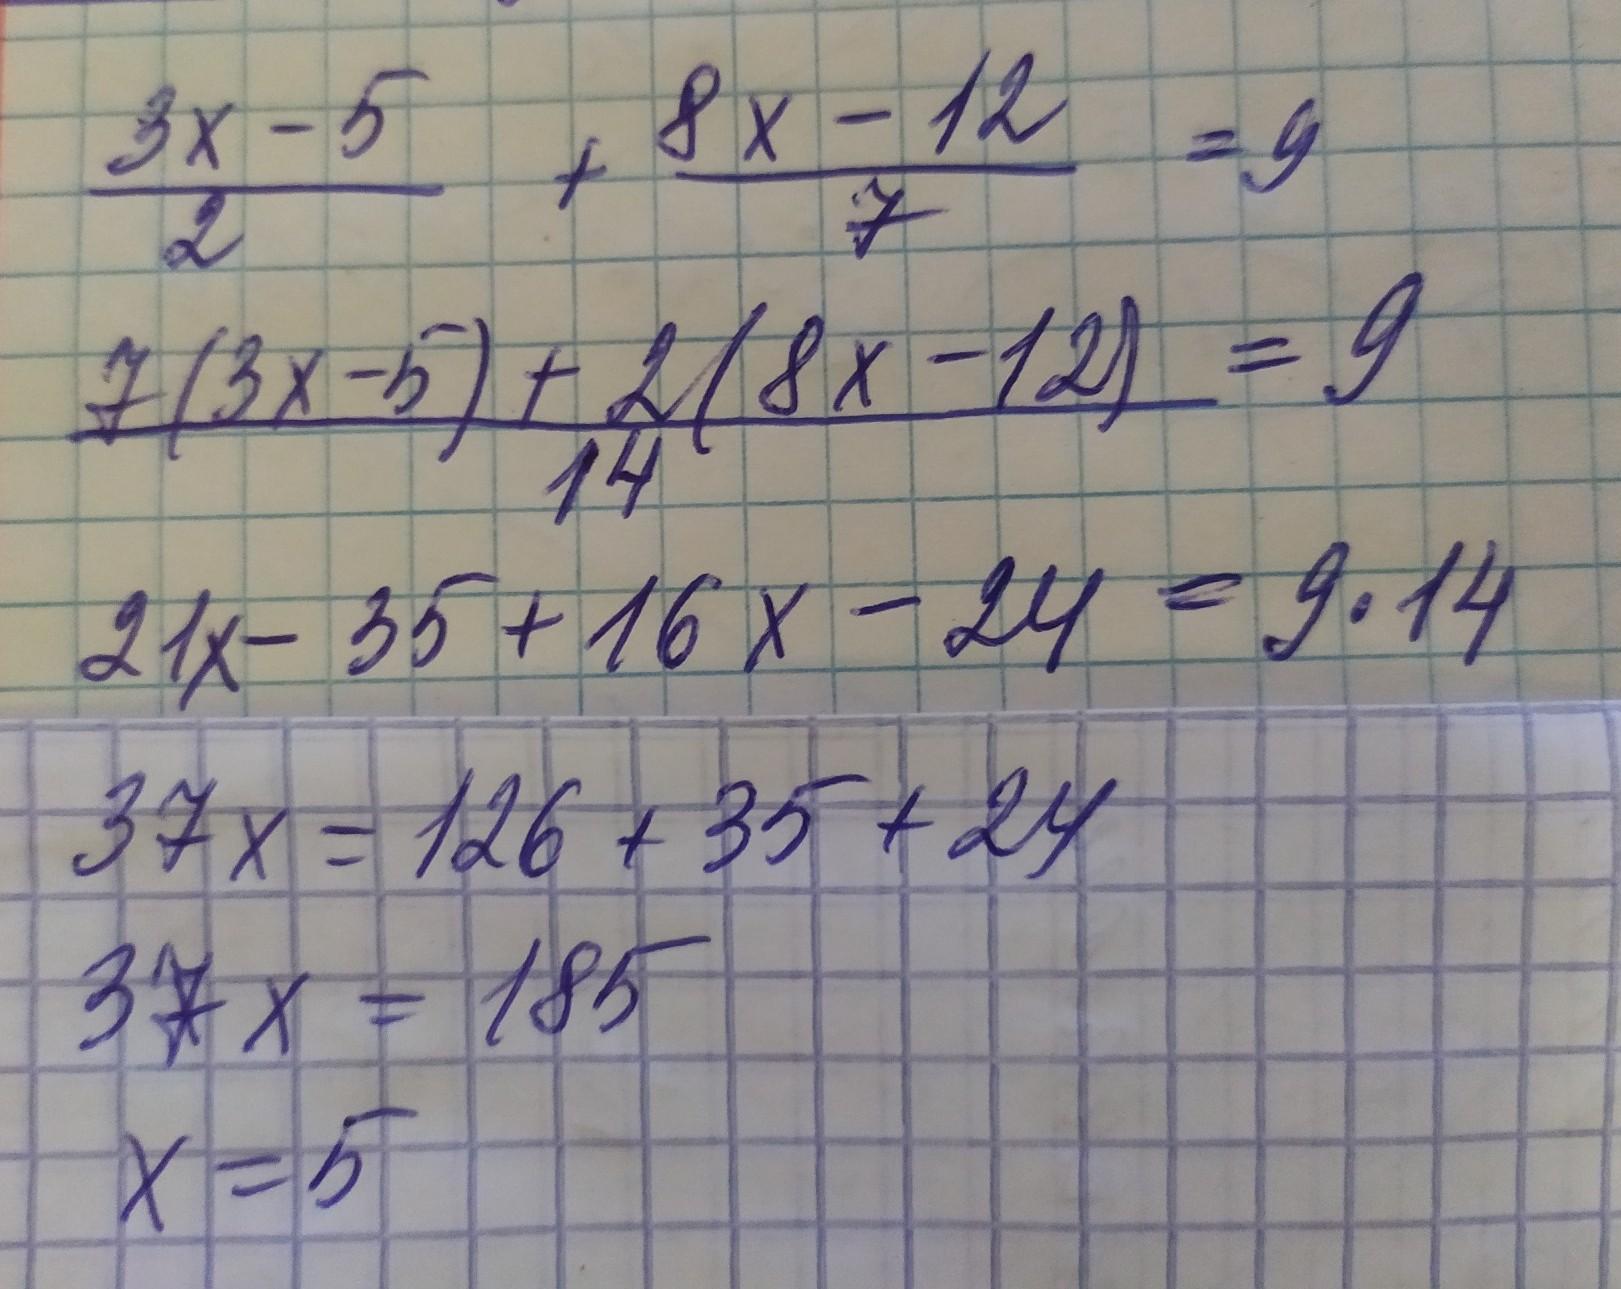 (3x-5)/2 + (8x-12)/7 = 9
(7(3x-5)+2(8x-12))/14 = 9
21x-35+16x-24=9·14
37x=126+35+24
37x=185
x=5